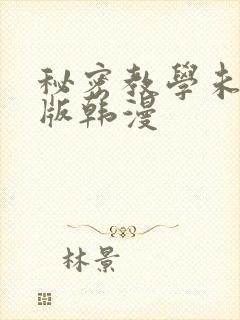 秘密教學未
版韩漫
林景